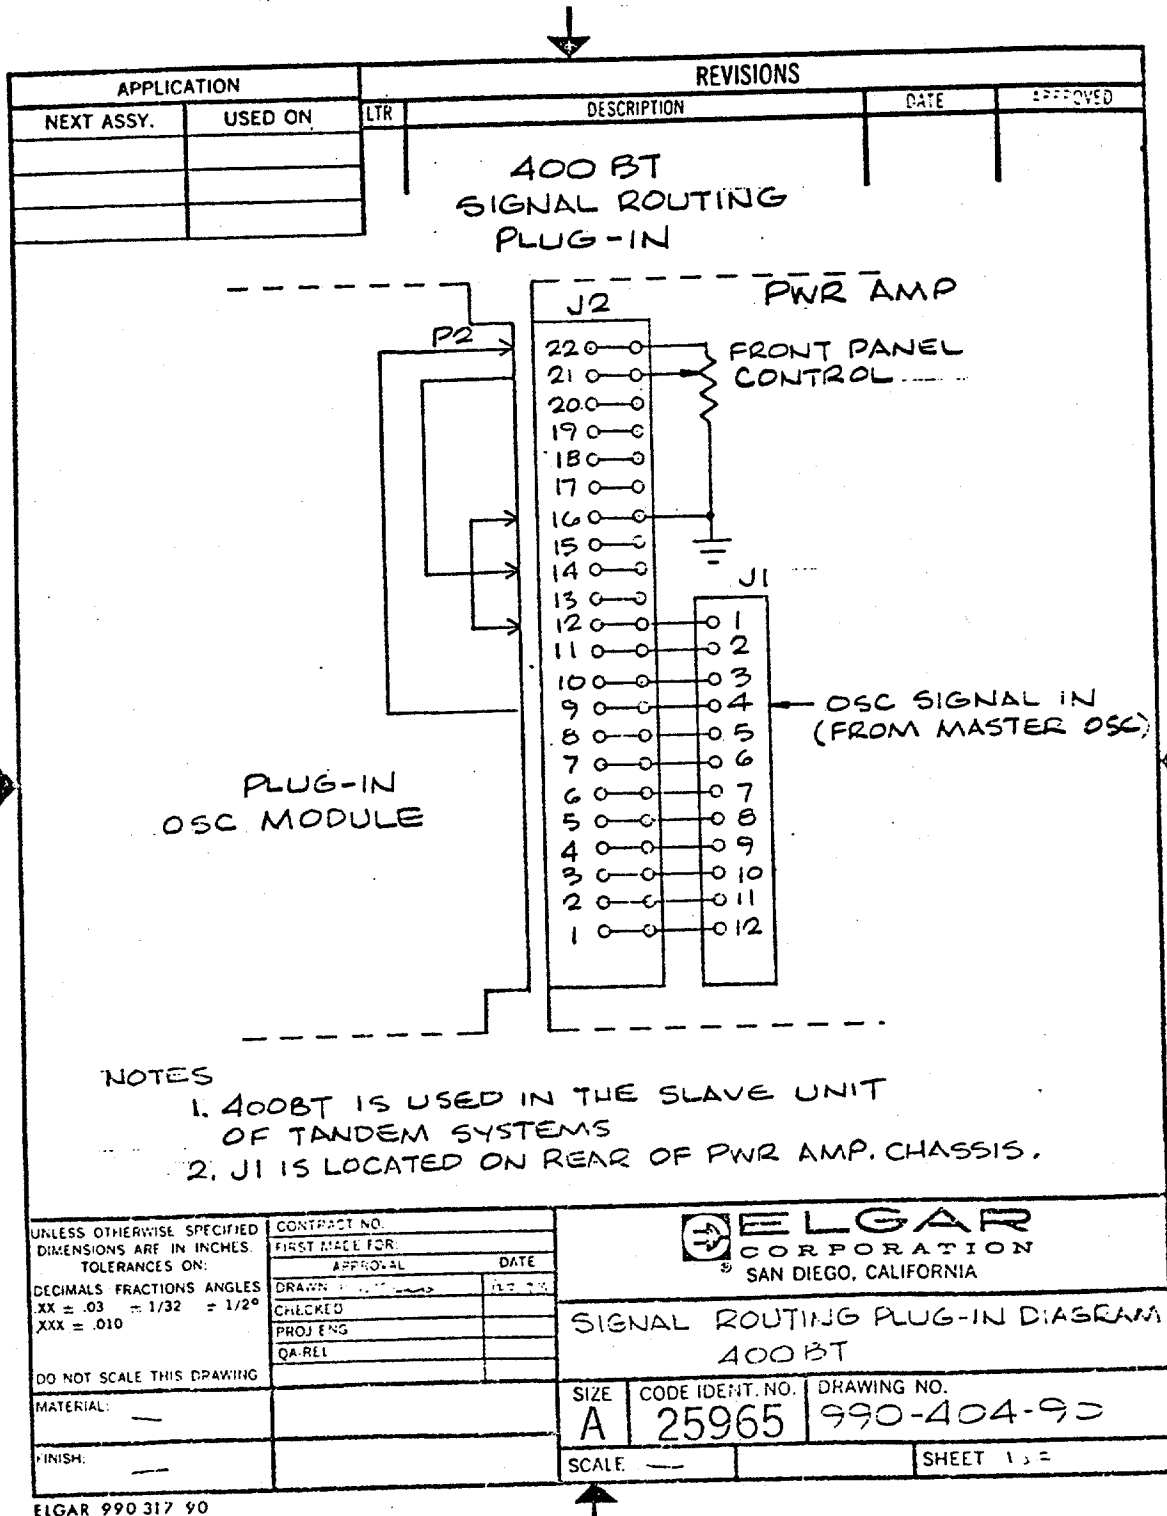 APPLICATION
REVISIONS
NEXT ASSY.
USED ON
LTR
DESCRIPTION
DATE
APPROVED
400 BT
SIGNAL ROUTING
PLUG-IN
PWR AMP
J2
P2
FRONT PANEL
CONTROL
22
21
20
19
18
17
16
15
14
13
12
11
10
9
8
7
6
5
4
3
2
1
J1
1
2
3
4
5
6
7
8
9
10
11
12
OSC SIGNAL IN
(FROM MASTER OSC)
PLUG-IN
OSC MODULE
NOTES
1. 400BT IS USED IN THE SLAVE UNIT
OF TANDEM SYSTEMS
2. J1 IS LOCATED ON REAR OF PWR AMP. CHASSIS.
UNLESS OTHERWISE SPECIFIED
DIMENSIONS ARE IN INCHES.
TOLERANCES ON:
DECIMALS FRACTIONS ANGLES
.XX = .03 = 1/32 = 1/2°
.XXX = .010
DO NOT SCALE THIS DRAWING
MATERIAL: —
FINISH: —
CONTRACT NO.
FIRST MADE FOR:
APPROVAL
DATE
DRAWN
CHECKED
PROJ ENG
QA-REL
ELGAR
CORPORATION
® SAN DIEGO, CALIFORNIA
SIGNAL ROUTING PLUG-IN DIAGRAM
400BT
SIZE
A
CODE IDENT. NO.
25965
DRAWING NO.
990-404-90
SCALE —
SHEET
ELGAR 990 317 90